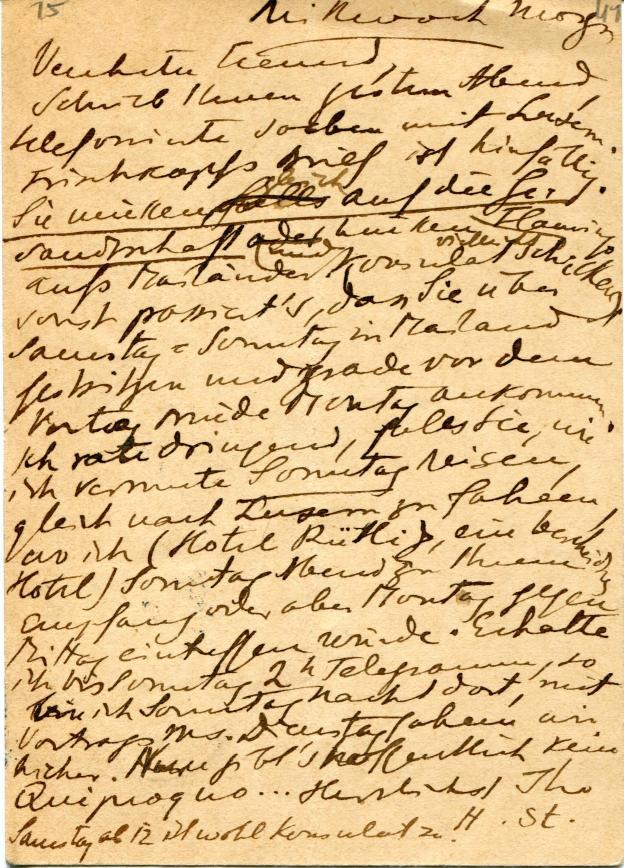 75 41
Mittwoch Morgn
Verehrter Freund,
Schrieb Ihnen gestern Abend,
telefonierte soeben mit Luzern.
Brief ist hinfällig.
Sie müssen falls gleich auf die Ges
sandtschaft oder (und)
aufs Mailänder Konsulat schicken
sonst passiert's, dass Sie über
Samstag = Sonntag in Mailand
festsitzen und grade vor dem
Vortrag müde Montag ankommen.
Ich rate dringend, falls Sie, wie
ich vermute Sonntag reisen,
gleich nach Luzern zu fahren,
wo ich (Hotel Rütli, ein bescheidnes
Hotel) Sonntag Abend zu Ihrem
Empfang oder aber Montag gegen
Mittag eintreffen würde. Erhalte
ich bis Sonntag 2 h Telegramm, so
bin ich Sonntag Nacht dort, mit
Vortrags Ms. Dienstag fahren wir
hieher. gibt's hoffentlich kein
Quiproquo... Herzlichst Ihr
H. St.
Samstag ab 12 ist wohl Konsulat zu.